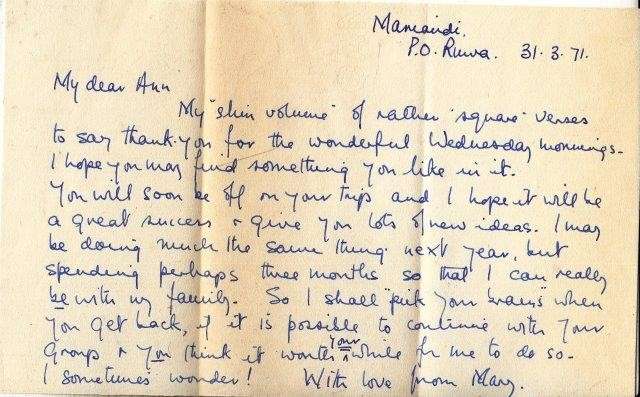 P.O. Ruwa. 31.3.71.
My dear Ann
My "slim volume" of rather "square" verses
to say thank-you for the wonderful Wednesday mornings -
I hope you may find something you like in it.
You will soon be off on your trips and I hope it will be
a great success & give you lots of new ideas. I may
be doing much the same thing next year, but
spending perhaps three months so that I can really
be with my family. So I shall "pick your brains" when
you get back, if it is possible to continue with your
Group & you think it worth your while for me to do so -
I sometimes wonder! With love from Mary.